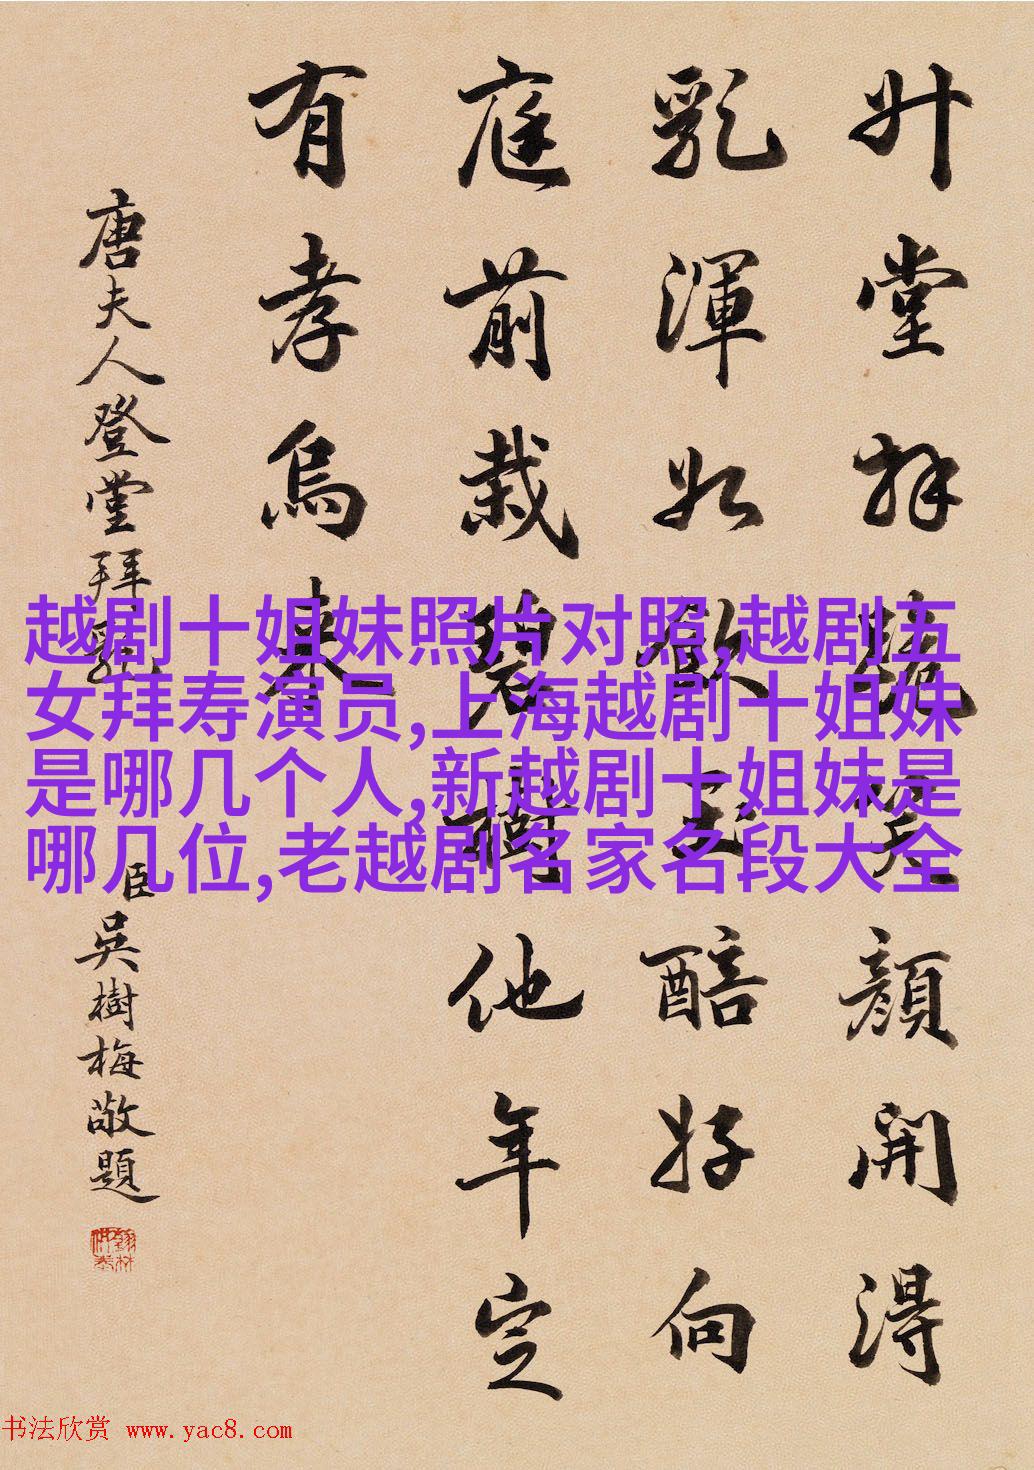 升堂拜笑顏開得
乳渾如飲玉醅好向
庭前栽碧樹他年定
有孝烏來
唐夫人登堂拜乳
臣吳樹梅敬題
越剧十姐妹照片对照,越剧五
女拜寿演员,上海越剧十姐妹
是哪几个人,新越剧十姐妹是
哪几位,老越剧名家名段大全
书法欣赏 www.yac8.com